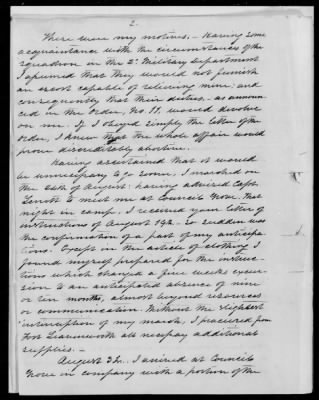 2.
These were my motives. – Having some
acquaintance with the circumstances of the
squadron in the 2d. Military Department
I opined that they would not furnish
an escort capable of relieving mine; and
consequently that their duties, as announ-
ced in the Order, No 11. would devolve
on me. If I obeyed simply the letter of the
order, I knew that the whole affair would
prove discreditably abortive.
Having ascertained that it would
be unnecessary to go sooner, I marched on
the of August; having advised Capt.
to meet me at Council Grove. That
night in camp, I received your letter of
instructions of August 19th. so sudden was
the confirmation of a part of my anticipa-
tions. Except in the article of clothing I
found myself prepared for the instruc-
tions which changed a five weeks excur-
sion to an anticipated absence of nine
or ten months, almost beyond resources
or communication. Without the slightest
interruption of my march, I procured from
Fort Leavenworth all necessary additional
supplies. –
August I arrived at Council
Grove in company with a portion of the